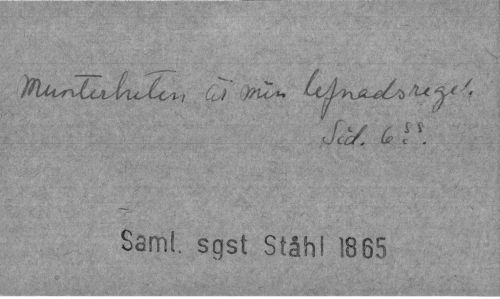 Munterheten är min lefnadsregel.
Sid. 6
Saml. sgst Ståhl 1865